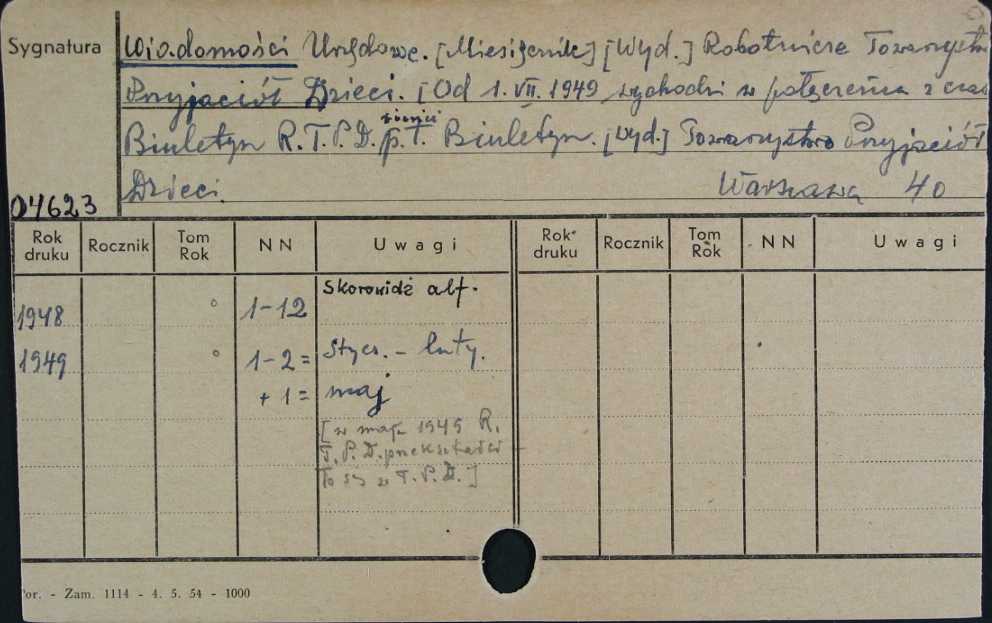 Sygnatura
Wiadomości Urzędowe. [Miesięcznik] [Wyd.] Robotnicze Towarzystw
Przyjaciół Dzieci. [Od 1. VII. 1949 wychodzi w połączeniu z czas
Biuletyn R.T.P.D. p.t. Biuletyn. [Wyd.] Towarzystwo Przyjaciół
Dzieci. Warszawa 40
04623
Rok druku Rocznik Tom Rok NN Uwagi Rok druku Rocznik Tom Rok NN Uwagi
Skorowidz alf.
1948 ° 1-12
1949 ° 1-2 = Stycz. - luty.
+ 1 = maj
[w maju 1949 R.
T.P.D. przekształci-
ło się w T.P.D.]
or. - Zam. 1114 - 4. 5. 54 - 1000